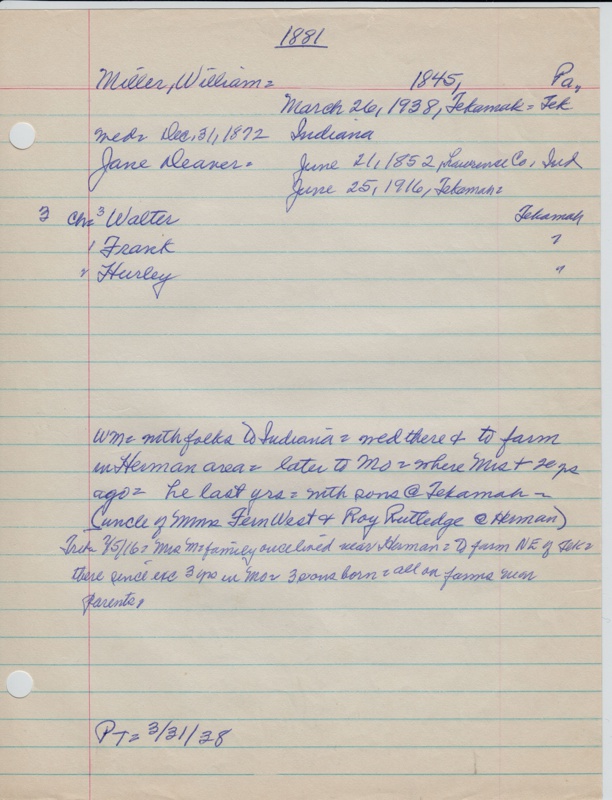 1881
Miller, William = 1845, Pa,
March 26, 1938, Tekamah = Tek
wed = Dec, 31, 1872 Indiana
Jane Deaver = June 21, 1852, Lawrence Co, Ind
June 25, 1916, Tekamah =
3 Ch = 3 Walter Tekamah
1 Frank "
2 Hurley "
Wm = with folks to Indiana = wed there & to farm
in Herman area = later to Mo = where Mrs +
ago = he last yrs = with sons @ Tekamah =
(uncle of Mmes Fern West & Roy Rutledge @ Herman)
7/5/16 = Mrs M = family once lived near Herman = to farm NE of Tek =
there since exc 3 yrs in Mo = 3 sons born = all on farms near
parents,
PT = 3/31/38